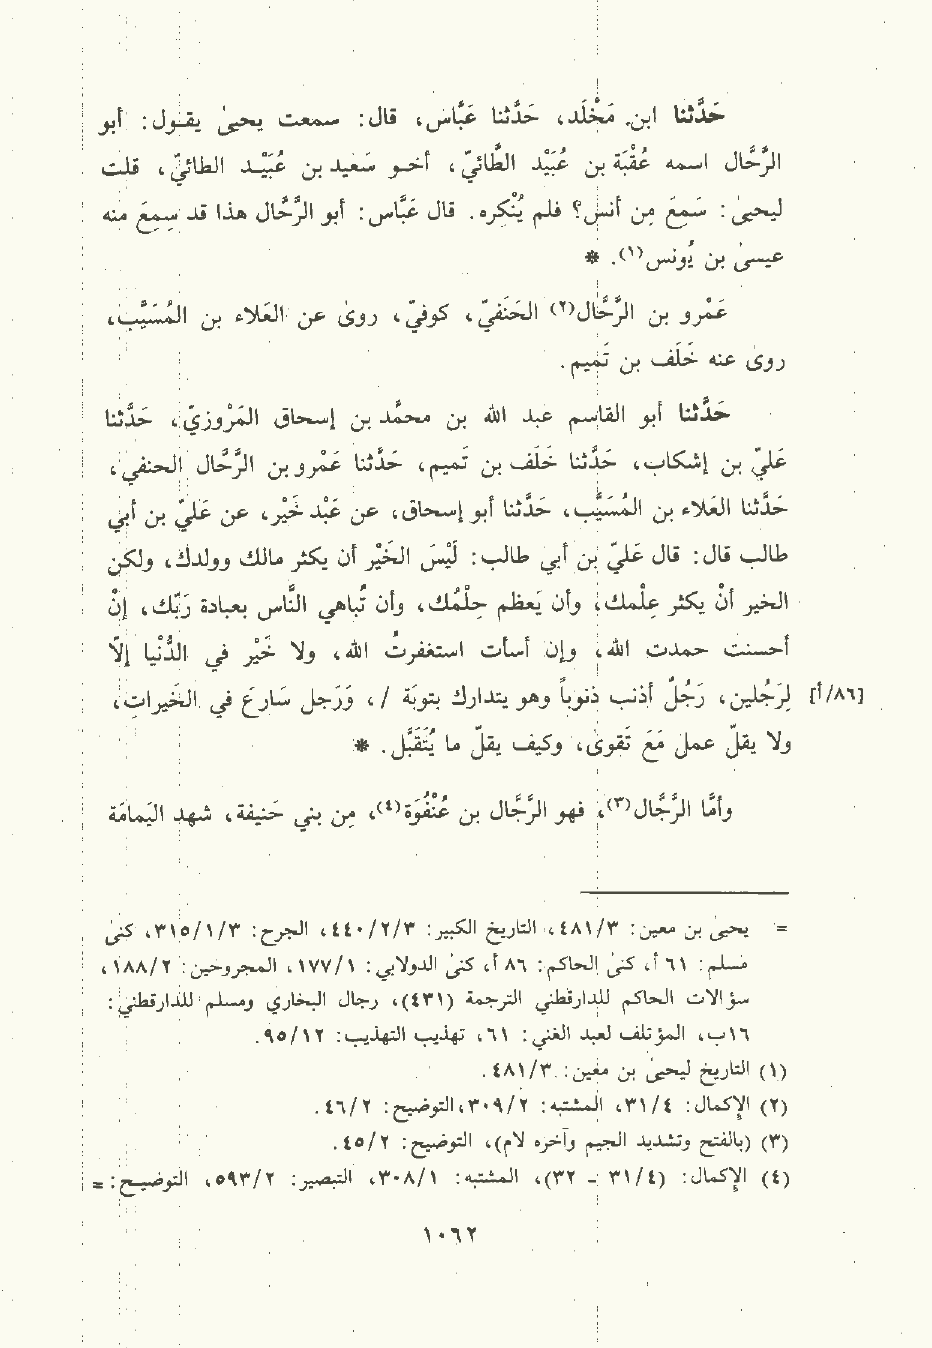 حَدَّثنا ابن مَخْلَد، حَدَّثنا عَبَّاس، قال: سمعت يحيىٰ يقـول: أبو
الرَّحَّال اسمه عُقْبَة بن عُبَيْد الطَّائيّ، أخـو سَعيد بن عُبَيْـد الطائيّ، قلت
ليحيىٰ: سَمِعَ مِن أنس؟ فلم يُنْكِره. قال عَبَّاس: أبو الرَّحَّال هذا قد سمِعَ منه
عيسىٰ بن يُونس(١). *
عَمْرو بن الرَّحَّال(٢) الحَنَفيّ، كوفيّ، روىٰ عن العَلاء بن المُسَيَّب،
روىٰ عنه خَلَف بن تَميم.
حَدَّثنا أبو القاسم عبد الله بن محمَّد بن إسحاق المَرْوزيّ، حَدَّثنا
عَليّ بن إشكاب، حَدَّثنا خَلَف بن تَميم، حَدَّثنا عَمْرو بن الرَّحَّال الحنفي،
حَدَّثنا العَلاء بن المُسَيَّب، حَدَّثنا أبو إسحاق، عن عَبْد خَيْر، عن عَليّ بن أبي
طالب قال: قال عَليّ بن أبي طالب: لَيْسَ الخَيْر أن يكثر مالك وولدك، ولكن
الخير أنْ يكثر عِلْمك، وأن يَعظم حِلْمُك، وأن تُباهي النَّاس بعبادة رَبّك، إنْ
أحسنت حمدت الله، وإن أسأت استغفرتُ الله، ولا خَيْر في الدُّنْيا إلاّ
[٨٦/أ] لِرَجُلين، رَجُلٌ أذنب ذنوباً وهو يتدارك بتوبَة، / وَرَجل سَارَع في الخَيرات،
ولا يقلّ عمل مَعَ تَقوىٰ، وكيف يقلّ ما يُتَقَبَّل. *
وأمَّا الرَّجَّال(٣)، فهو الرَّجَّال بن عُنْفُوَة(٤)، مِن بني حَنيفة، شهد اليَمامَة
= يحيىٰ بن معين: ٣/ ٤٨١، التاريخ الكبير: ٣/ ٢/ ٤٤٠، الجرح: ٣/ ١/ ٣١٥، كنىٰ
مسلم: ٦١ أ، كنىٰ الحاكم: ٨٦ أ، كنىٰ الدولابي: ١/ ١٧٧، المجروحين: ٢/ ١٨٨،
سؤالات الحاكم للدارقطني الترجمة (٤٣١)، رجال البخاري ومسلم للدارقطني:
١٦ب، المؤتلف لعبد الغني: ٦١، تهذيب التهذيب: ١٢/ ٩٥.
(١) التاريخ ليحيىٰ بن معين: ٣/ ٤٨١.
(٢) الإكمال: ٤/ ٣١، المشتبه: ٢/ ٣٠٩، التوضيح: ٢/ ٤٦.
(٣) (بالفتح وتشديد الجيم وآخره لام)، التوضيح: ٢/ ٤٥.
(٤) الإكمال: (٤/ ٣١ ــ ٣٢)، المشتبه: ١/ ٣٠٨، التبصير: ٢/ ٥٩٣، التوضيـح: =
١٠٦٢